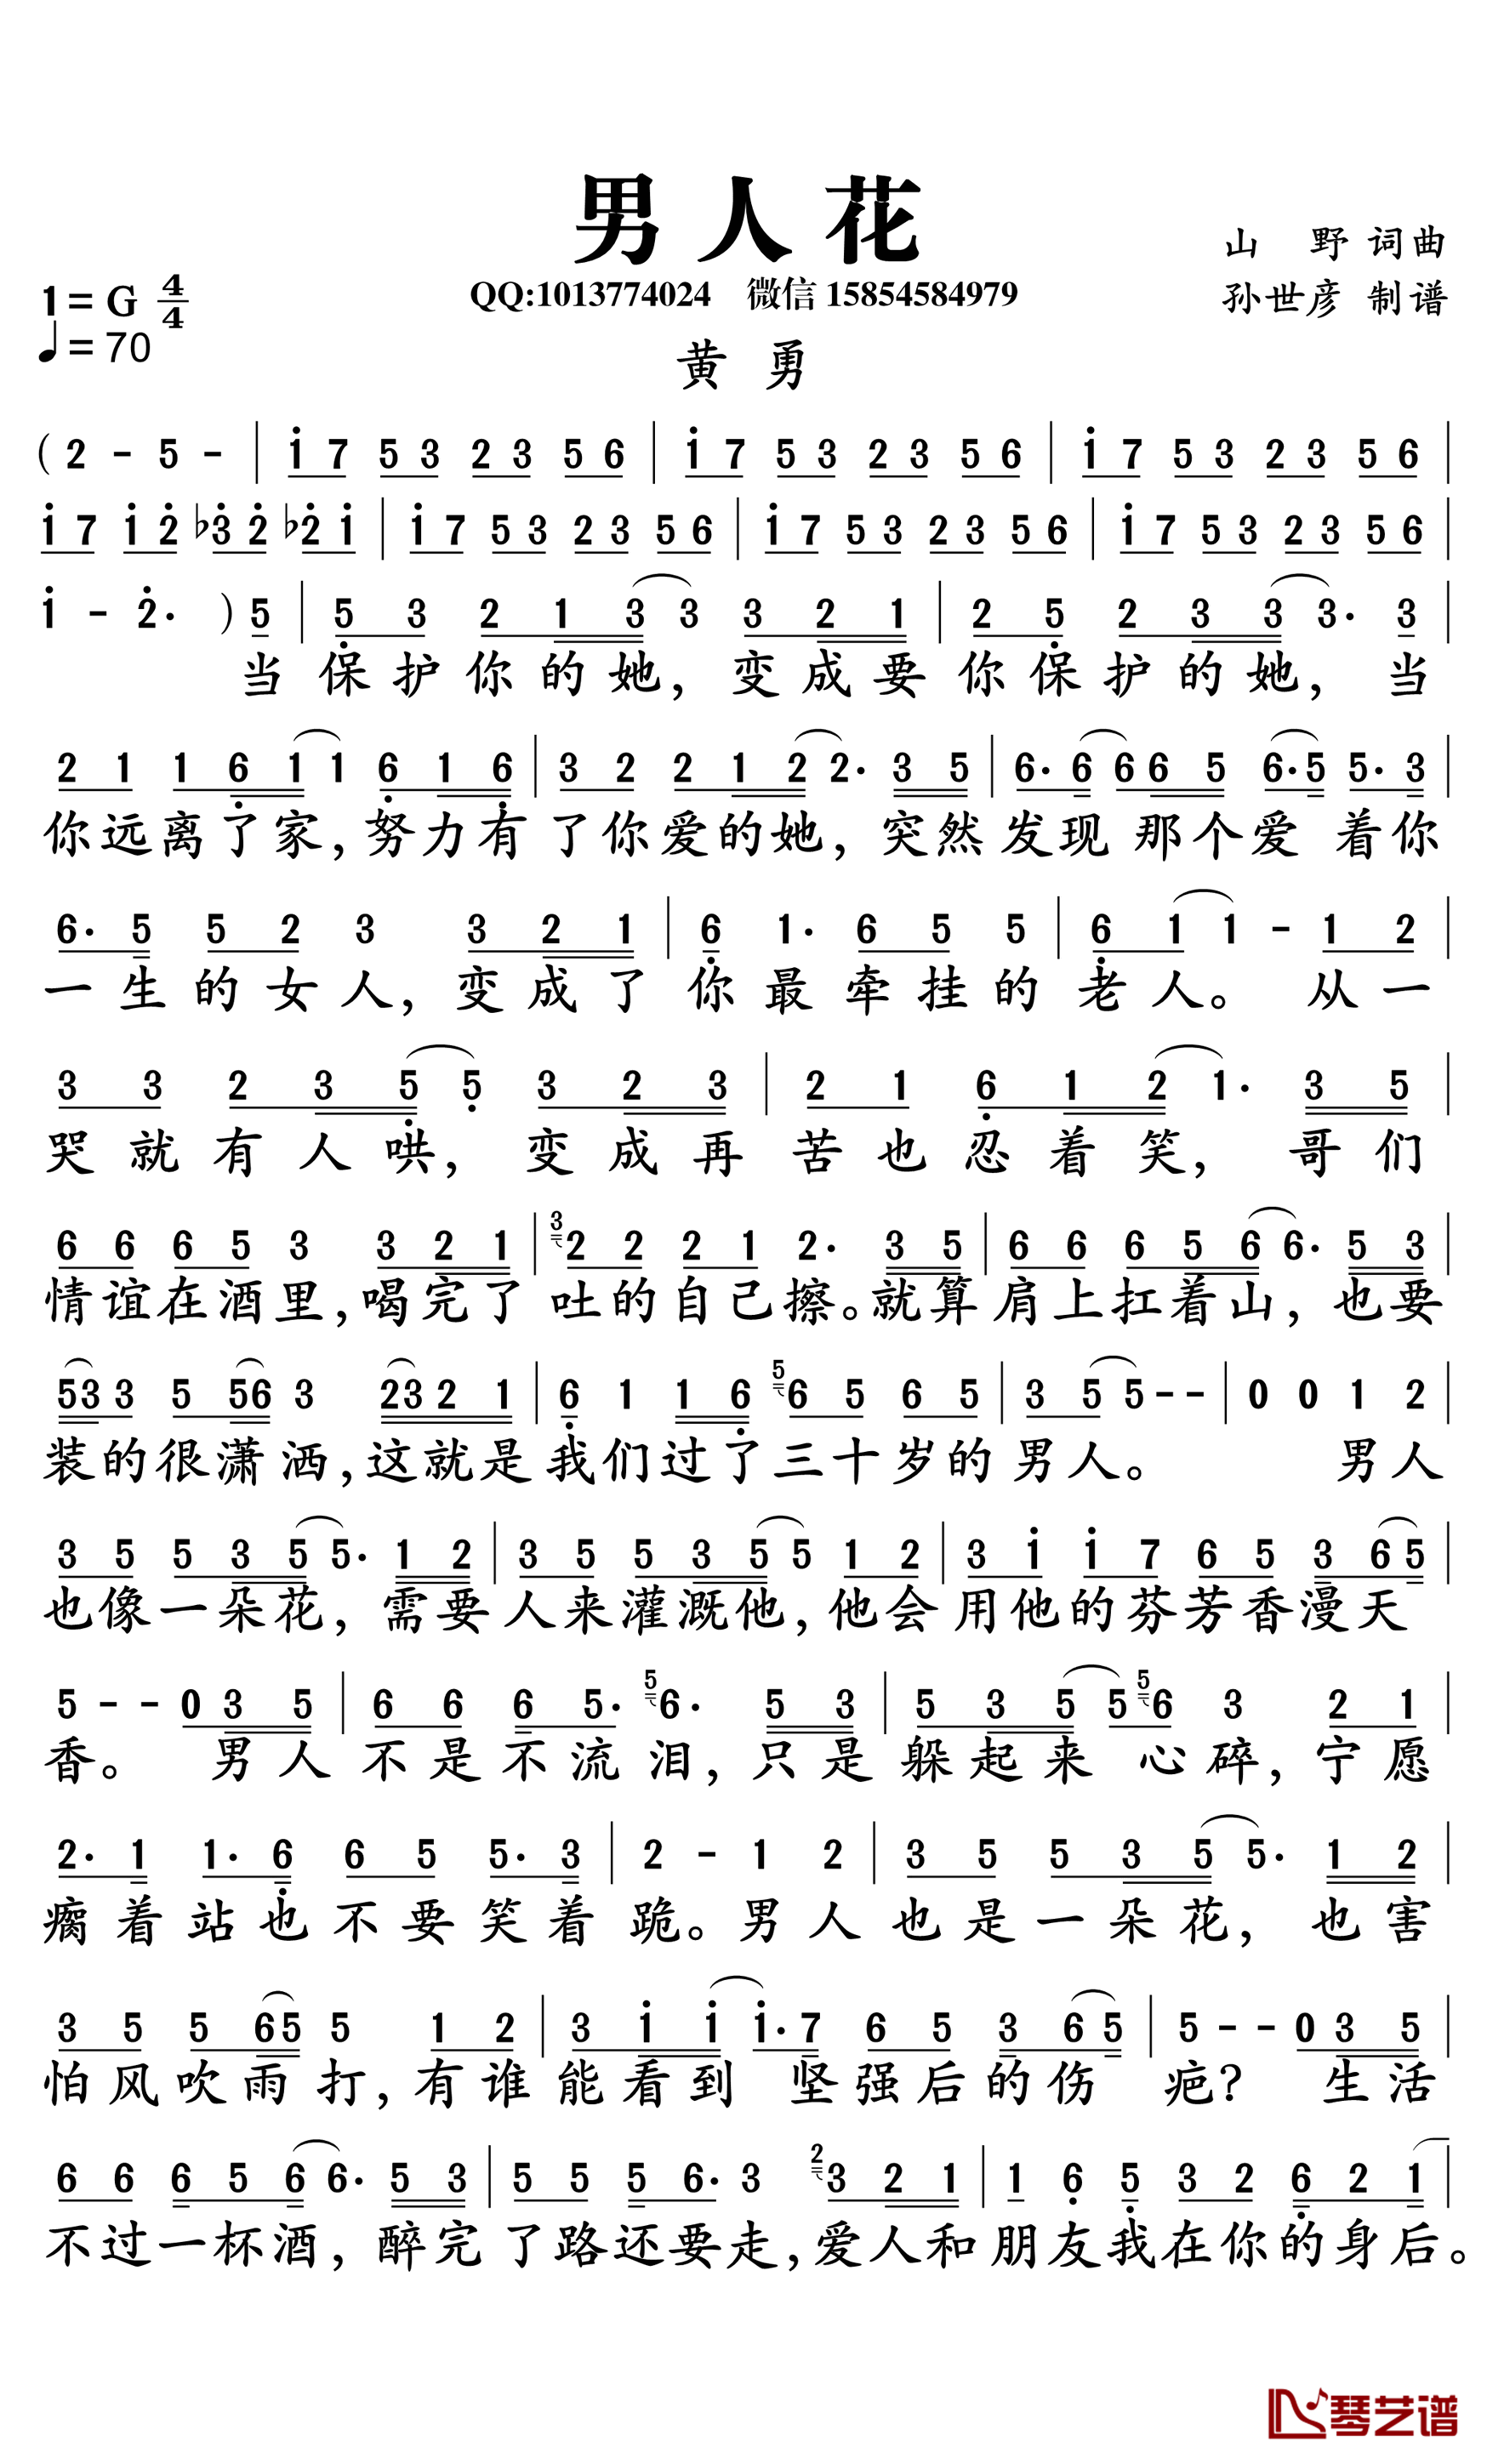 男人花
山 野 词曲
1= G 4/4
QQ:1013774024 微信 15854584979
孙世彦 制谱
♩= 70
黄 勇
( 2 - 5 - | i 7 5 3 2 3 5 6 | i 7 5 3 2 3 5 6 | i 7 5 3 2 3 5 6 |
i 7 i 2̇ ♭3̇ 2̇ ♭2̇ i | i 7 5 3 2 3 5 6 | i 7 5 3 2 3 5 6 | i 7 5 3 2 3 5 6 |
i - 2̇· ) 5 | 5 3 2 1 3 3 3 2 1 | 2 5 2 3 3 3· 3 |
当 保护你的她，变成要你保护的她，当
2 1 1 6̣ 1 1 6̣ 1 6̣ | 3 2 2 1 2 2· 3 5 | 6· 6 6 6 5 6· 5 5· 3 |
你远离了家，努力有了你爱的她，突然发现 那个爱 着你
6· 5 5 2 3 3 2 1 | 6̣ 1· 6 5 5 | 6̣ 1 1 - 1 2 |
一生的女人，变成了 你最牵挂的老人。 从一
3 3 2 3 5̣ 5̣ 3 2 3 | 2 1 6̣ 1 2 1· 3 5 |
哭就有人哄，变成再苦也忍着笑，哥们
6 6 6 5 3 3 2 1 | 3 2 2 2 1 2· 3 5 | 6 6 6 5 6 6· 5 3 |
情谊在酒里，喝完了 吐的自己擦。就算肩上扛着山，也要
5 3 3 5 5 6 3 2 3 2 1 | 6̣ 1 1 6̣ 5 6 5 6 5 | 3 5 5 - - | 0 0 1 2 |
装的很潇洒，这就是我们过了三十岁的男人。 男人
3 5 5 3 5 5· 1 2 | 3 5 5 3 5 5 1 2 | 3 i i 7 6 5 3 6 5 |
也像一朵花，需要人来灌溉他，他会用他的芬芳香漫天
5 - - 0 3 5 | 6 6 6 5· 5 6· 5 3 | 5 3 5 5 5 6 3 2 1 |
香。 男人 不是不流泪，只是躲起来 心碎，宁愿
2· 1 1· 6̣ 6 5 5· 3 | 2 - 1 2 | 3 5 5 3 5 5· 1 2 |
瘸着站也不要笑着跪。男人也是一朵花，也害
3 5 5 6 5 5 1 2 | 3 i i i· 7 6 5 3 6 5 | 5 - - 0 3 5 |
怕风吹雨打，有谁能看到 坚强后的伤 疤？ 生活
6 6 6 5 6 6· 5 3 | 5 5 5 6· 3 2 3 2 1 | 1 6̣ 5̣ 3 2 6̣ 2 1 |
不过一杯酒，醉完了路还要走，爱人和朋友我在你的身后。
琴艺谱